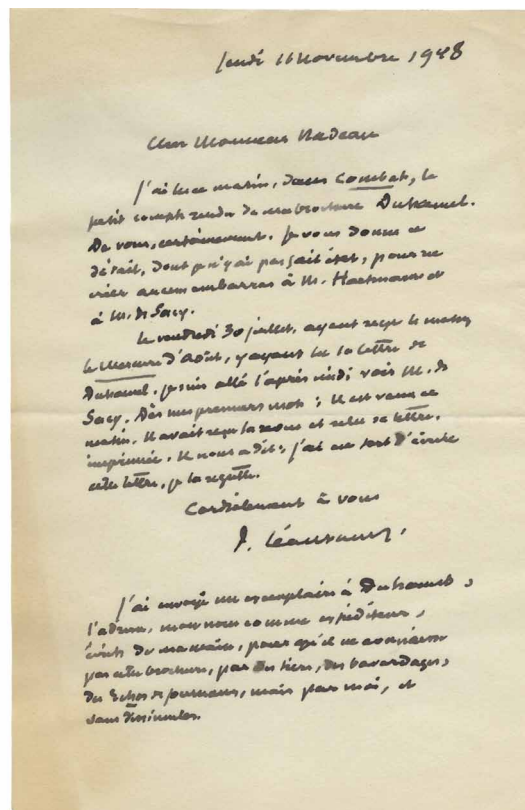 Jeudi 16 Novembre 1948
Cher Monsieur Nadeau
J'ai lu ce matin, dans Combat, le
petit compte rendu de ma brochure Duhamel.
De vous, certainement. Je vous donne ce
détail, dont je n'y ai pas fait état, pour ne
créer aucun embarras à M. Hartmann et
à M. de Sacy.
Le vendredi 30 juillet, ayant reçu le matin
le Mercure d'Août, y ayant lu la lettre de
Duhamel, je suis allé l'après midi voir M. de
Sacy. Dès mes premiers mots : Il est venu ce
matin. Il avait reçu la revue et relu sa lettre,
imprimée. Il nous a dit : j'ai eu tort d'écrire
cette lettre, je la regrette.
Cordialement à vous
P. Léautaud.
J'ai envoyé un exemplaire à Duhamel,
l'adresse, mon nom comme expéditeur,
écrits de ma main, pour qu'il ne connaisse
pas cette brochure, par des tiers, des bavardages,
des Echos de journaux, mais par moi, et
sans dissimuler.